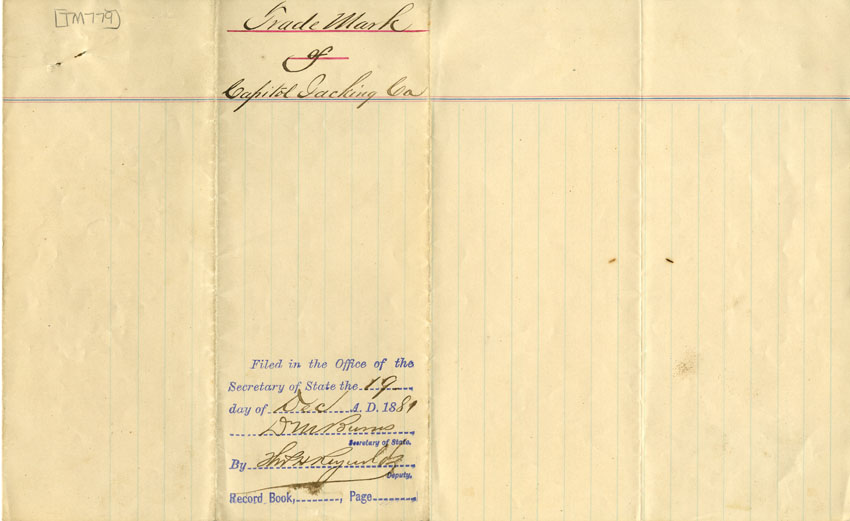 [TM779]
Trade Mark
of
Capitol Packing Co
Filed in the Office of the
Secretary of State the 19
day of Dec A. D. 1881
D M Burns
Secretary of State.
By Thos H Reynolds
Deputy.
Record Book, , Page